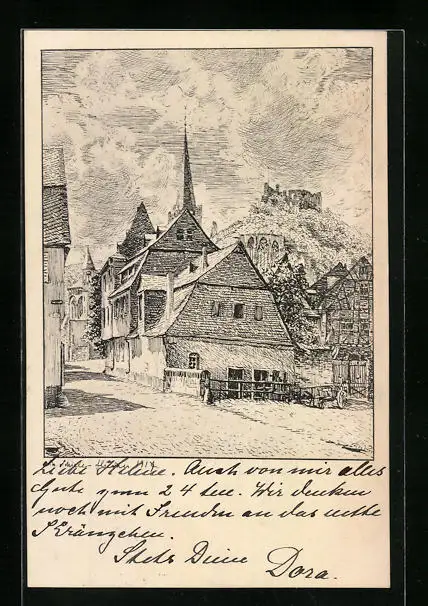 Liebe Helene. Auch von mir alles
Gute zum 24 ten. Wir denken
noch mit Freuden an das nette
Kränzchen.
Stets Deine Dora.